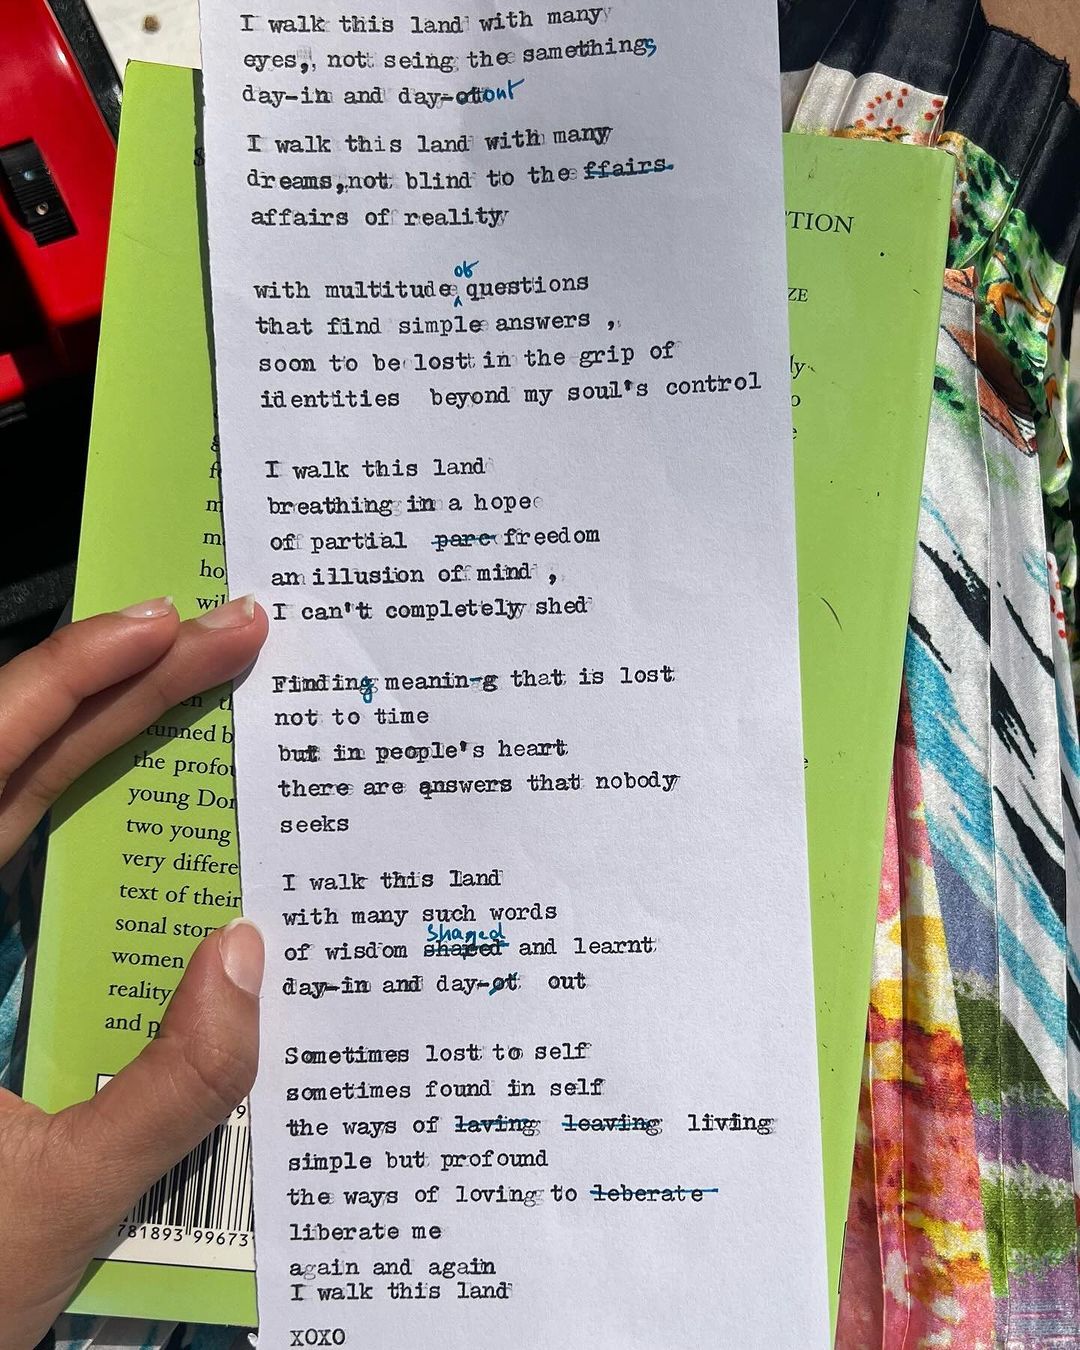 I walk this land with many
eyes, not seing the samethings
day-in and day-otout
I walk this land with many
dreams,not blind to the ffairs.
affairs of reality
of
with multitude questions
that find simple answers ,
soon to be lost in the grip of
identities beyond my soul's control
I walk this land
breathing in a hope
of partial parc freedom
an illusion of mind ,
I can't completely shed
Finding meanin-g that is lost
not to time
but in people's heart
there are answers that nobody
seeks
I walk this land
with many such words
shaped
of wisdom shaped and learnt
day-in and day-ot out
Sometimes lost to self
sometimes found in self
the ways of laving leaving living
simple but profound
the ways of loving to leberate
liberate me
again and again
I walk this land
XOXO
TION
ZE
ly
wil
stunned b
the profou
young Dor
two young
very differe
text of their
sonal stor
women
reality
and p
781893 99673